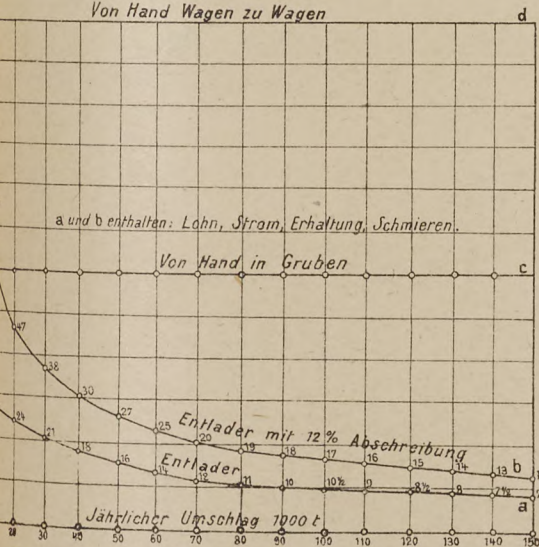 Von Hand Wagen zu Wagen d
a und b enthalten: Lohn, Strom, Erhaltung, Schmieren.
Von Hand in Gruben c
47 38 30 27 25 20 19 18 17 16 15 14 13
Entlader mit 12% Abschreibung b
24 21 18 16 14 12 11 10 10½ 9 8½ 8 7½
Entlader a
Jährlicher Umschlag 1000 t
20 30 40 50 60 70 80 90 100 110 120 130 140 150